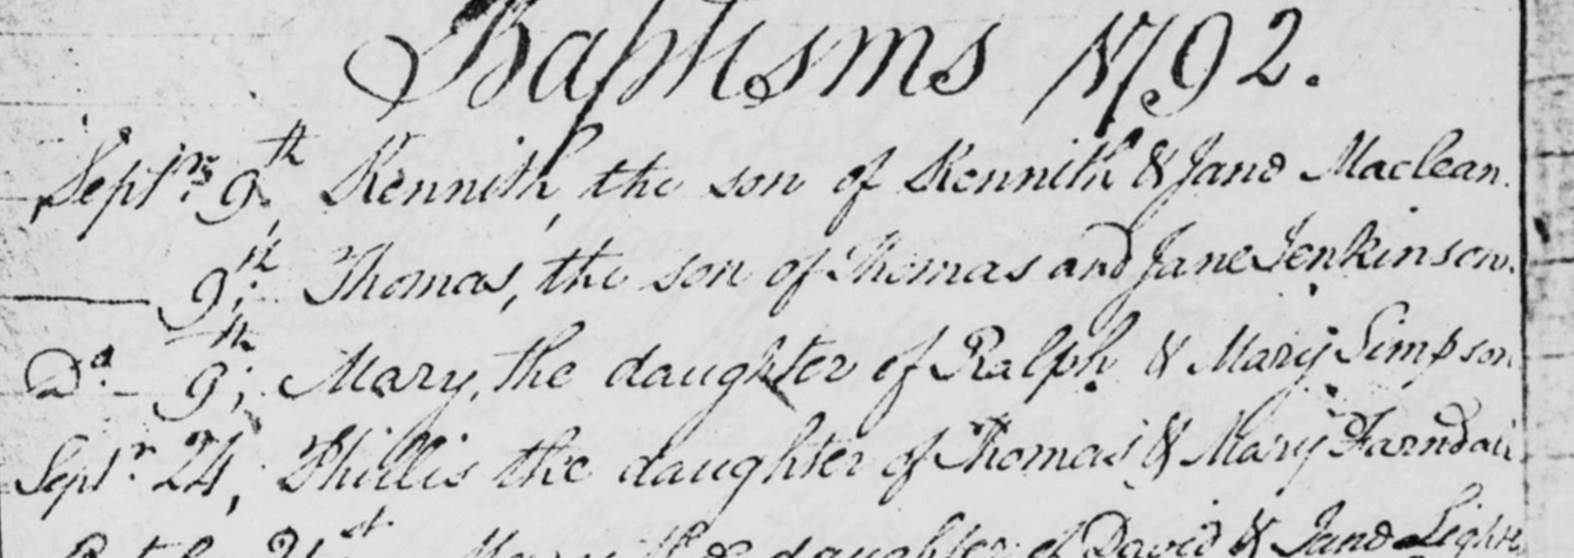 Baptisms 1792.
Septr. 9th, Kennith, the son of Kennith & Jane Maclean.
9th; Thomas, the son of Thomas and Jane Jenkinson.
Do. - 9th; Mary, the daughter of Ralph & Mary Simpson
Septr. 24, Phillis the daughter of Thomas & Mary
21st Mary the daughter of David & Jane